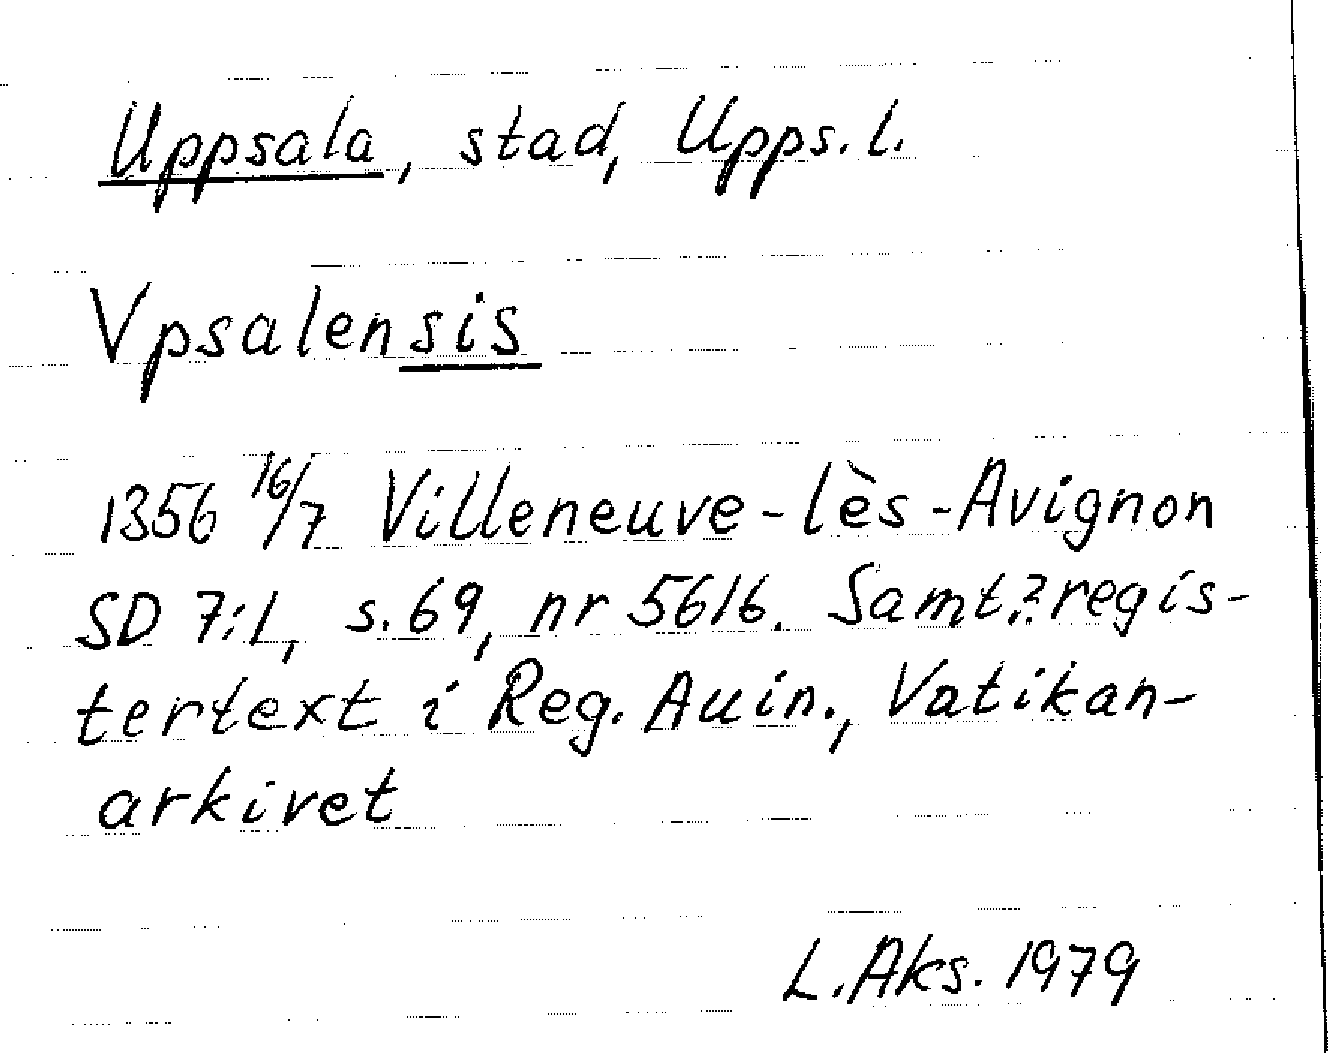 Uppsala, stad, Upps. l.
Vpsalensis
1356 16/7 Villeneuve-lès-Avignon
SD 7:1, s. 69, nr 5616. Samt.? regis-
tertext i Reg. Auin., Vatikan-
arkivet
L. Aks. 1979